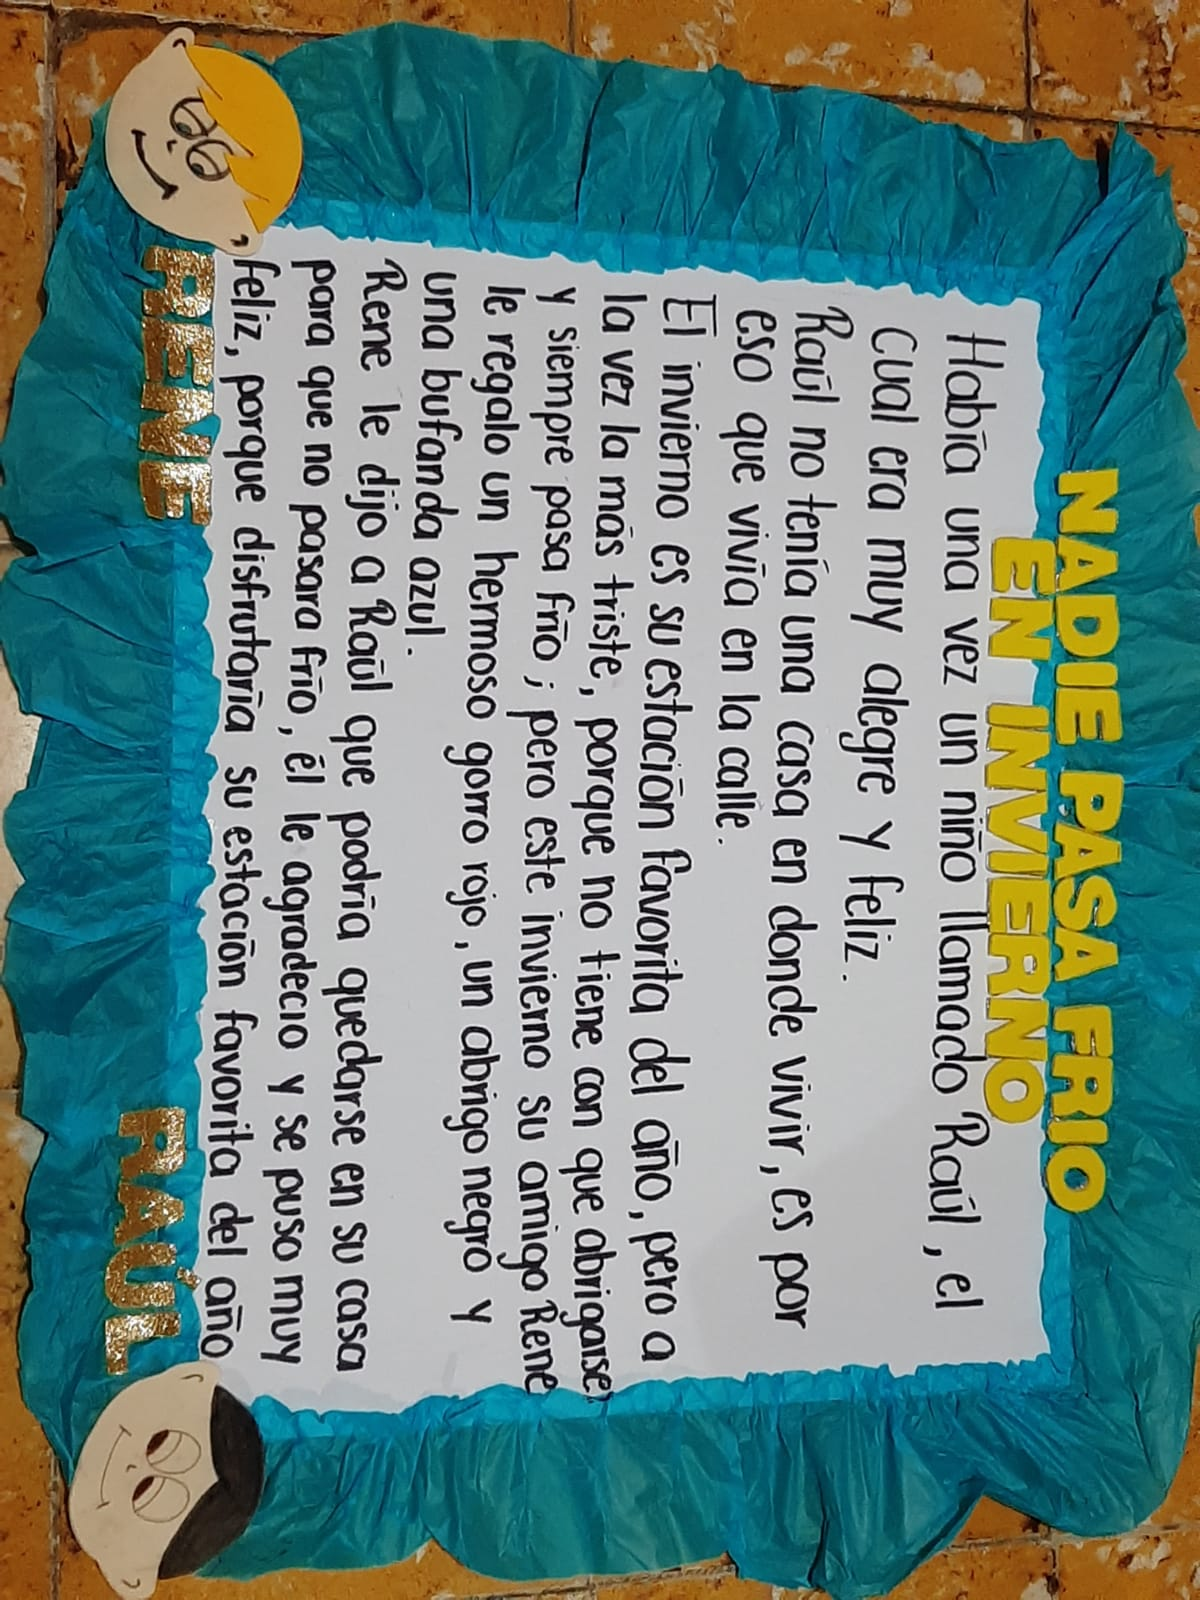 NADIE PASA FRIO
EN INVIERNO
Había una vez un niño llamado Raúl, el
cual era muy alegre y feliz.
Raúl no tenía una casa en donde vivir, es por
eso que vivía en la calle.
El invierno es su estación favorita del año, pero a
la vez la más triste, porque no tiene con que abrigarse
y siempre pasa frío; pero este invierno su amigo Rene
le regalo un hermoso gorro rojo, un abrigo negro y
una bufanda azul.
Rene le dijo a Raúl que podría quedarse en su casa
para que no pasara frío, él le agradecio y se puso muy
feliz, porque disfrutaría su estación favorita del año
RENE
RAÚL